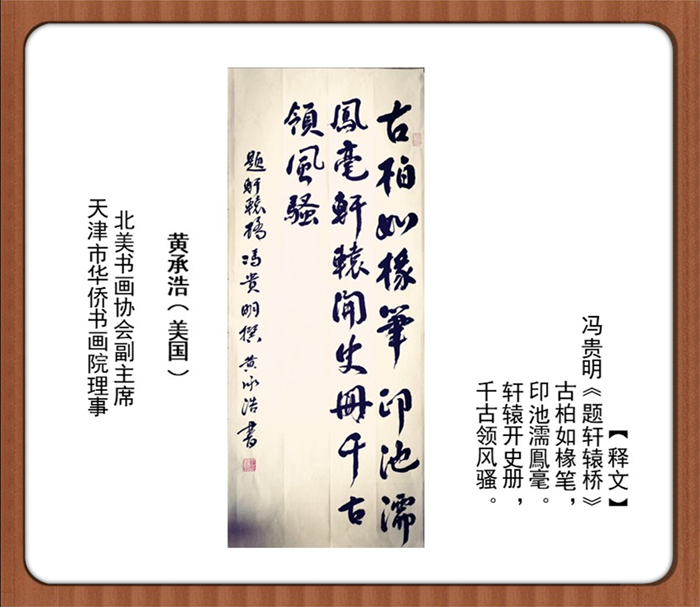 【释文】
冯贵明《题轩辕桥》
古柏如椽笔，
印池濡鳳毫。
轩辕开史册，
千古领风骚。
古柏如椽筆印池濡
鳳毫軒轅開史冊千古
領風騷
题軒轅橋冯貴明撰黄承浩書
黄承浩（美国）
北美书画协会副主席
天津市华侨书画院理事